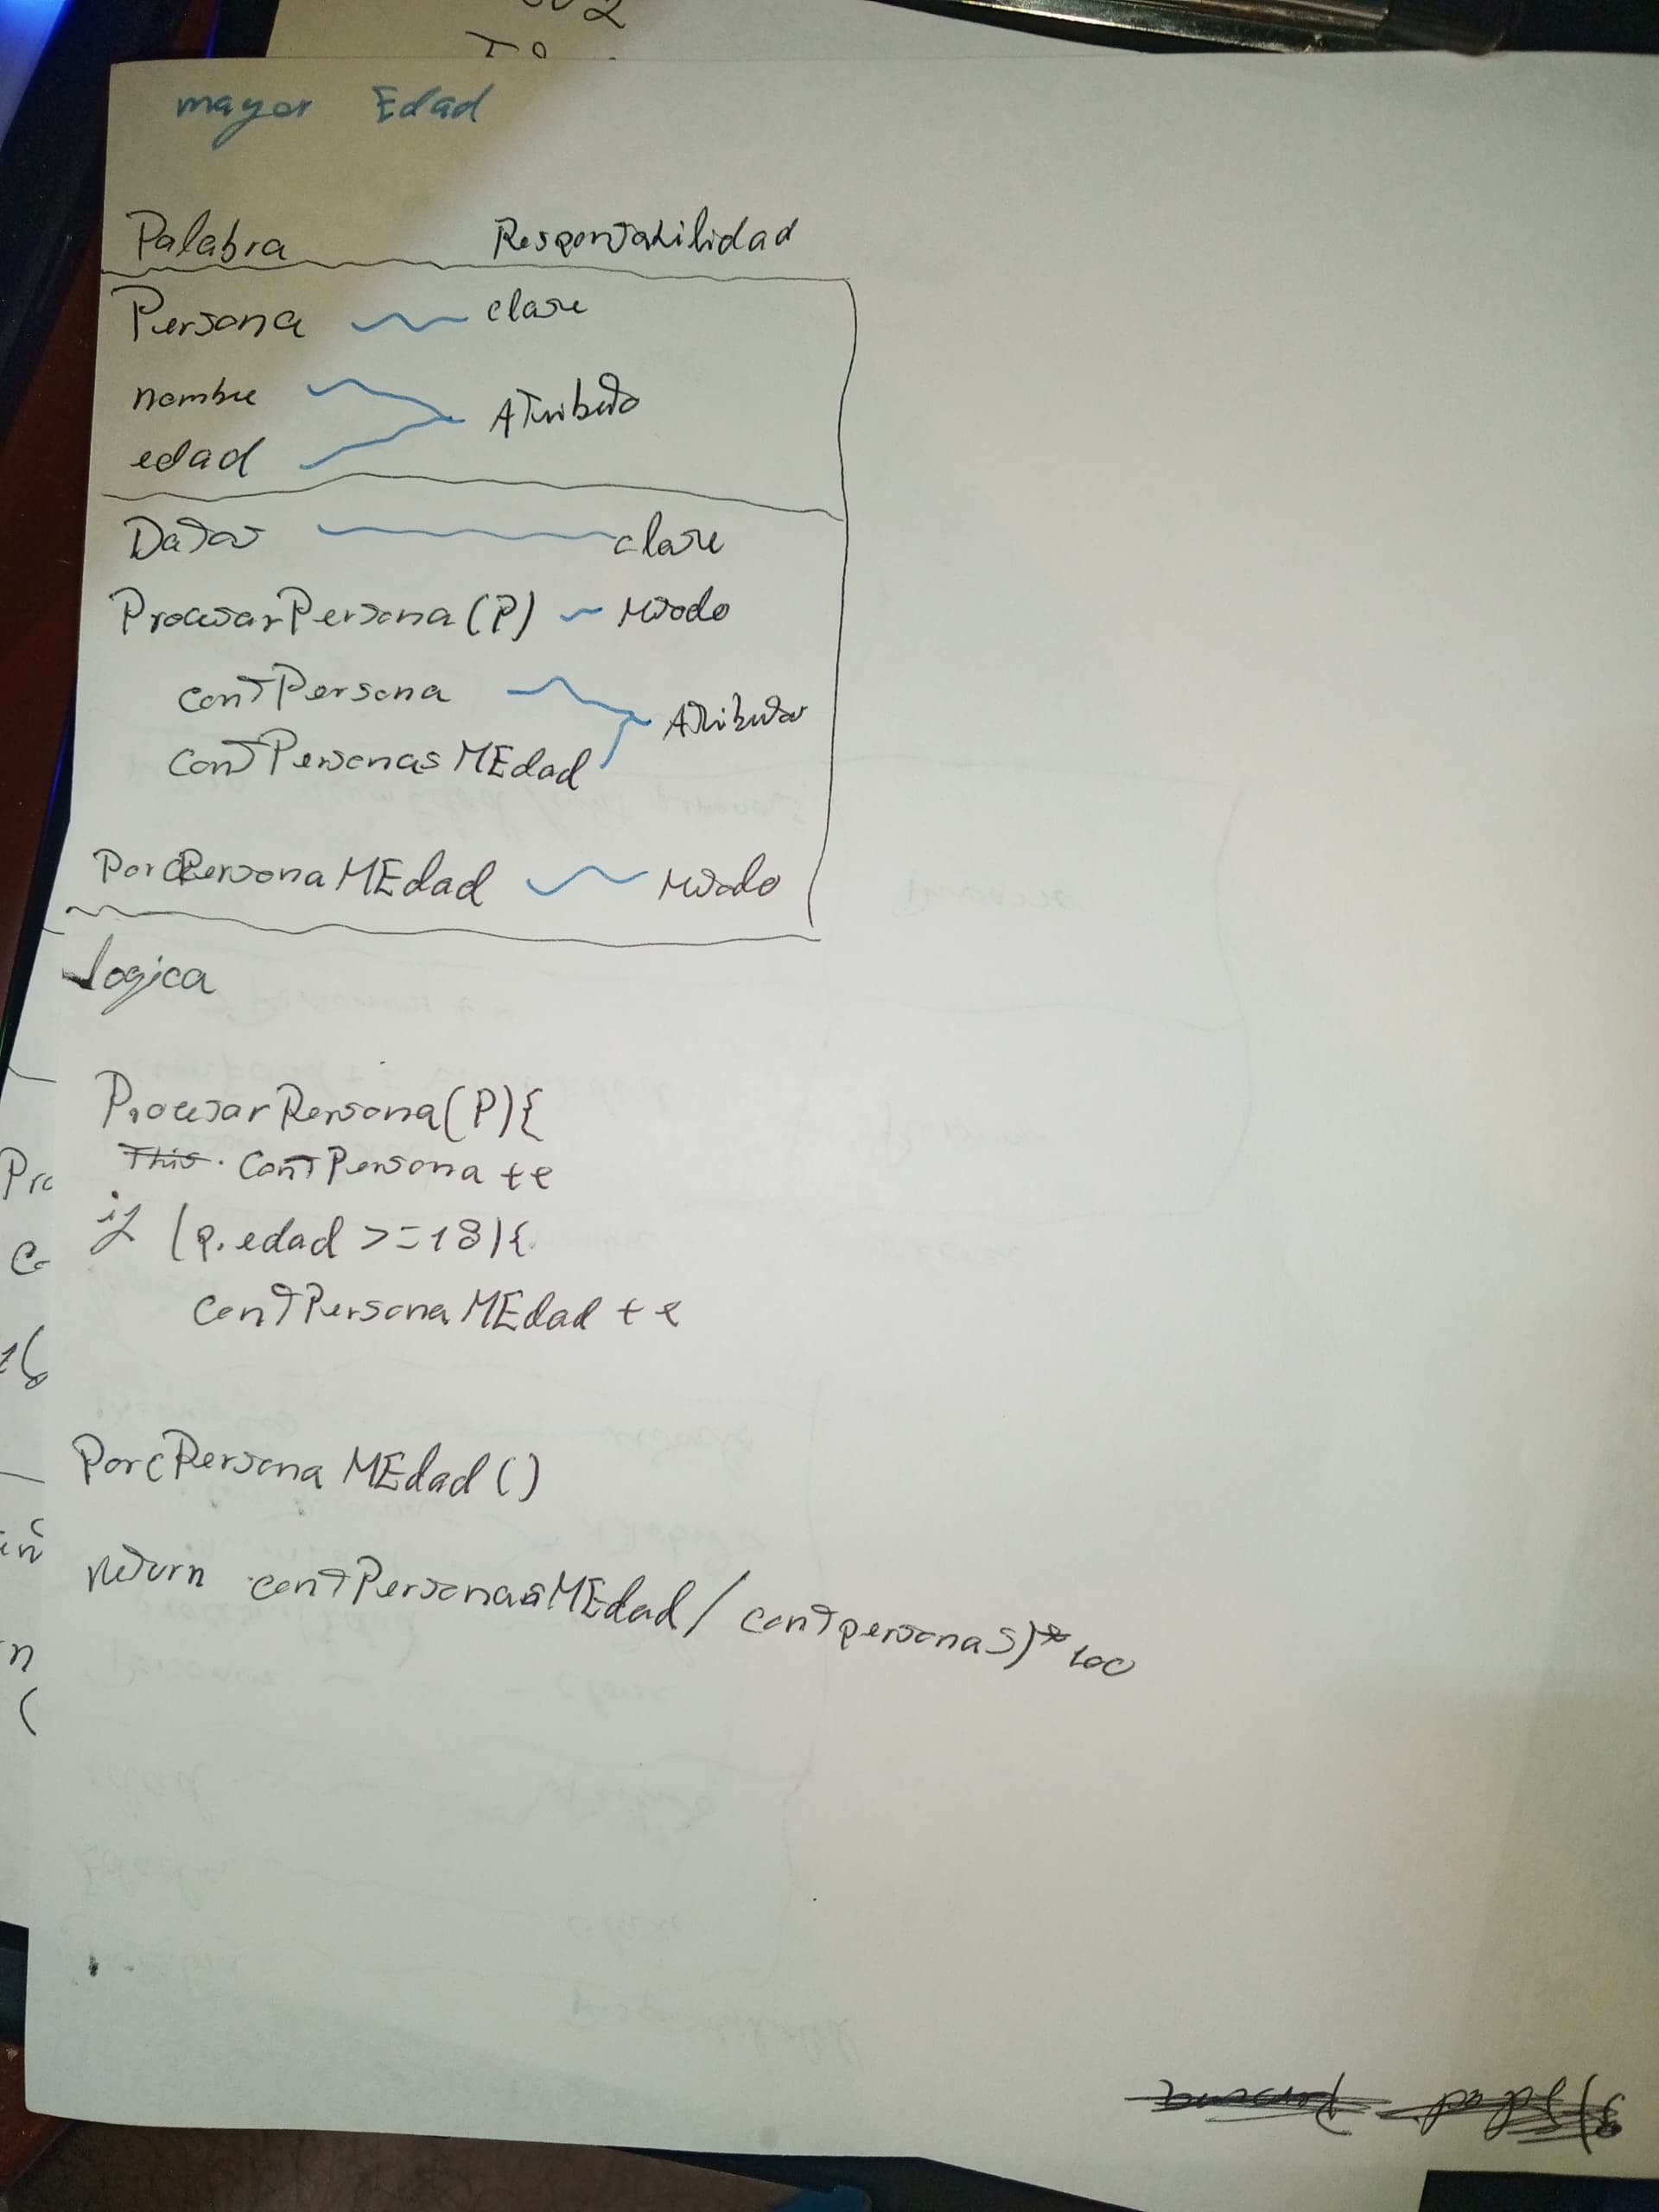 mayor Edad
Palabra Responsabilidad
Persona clase
nombre
Atributo
edad
Datos clase
ProcesarPersona(P) Metodo
contPersona
Atributos
contPersonasMEdad
PorcPersonaMEdad Metodo
Logica
ProcesarPersona(P){
This. contPersona ++
if (p.edad >=18){
contPersonaMEdad ++
PorcPersonaMEdad()
return contPersonasMEdad / contpersonas)*100